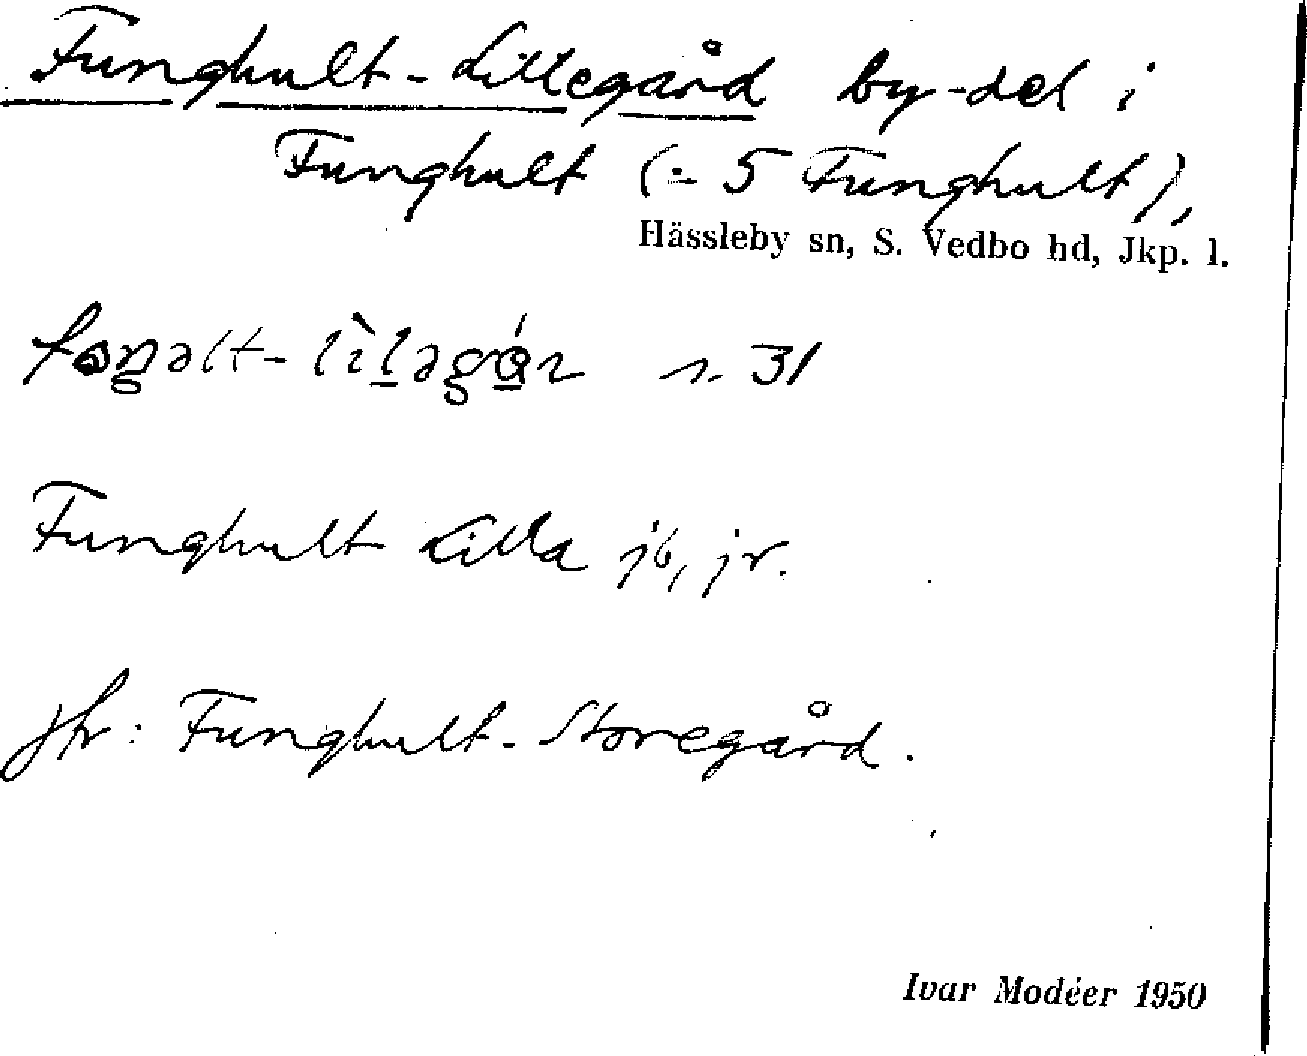 Funghult-Lillegård by-del i
Funghult (= 5 Funghult),
Hässleby sn, S. Vedbo hd, Jkp. l.
s. 31
Funghult Lilla jb, jr.
jfr: Funghult-Storegård.
Ivar Modéer 1950